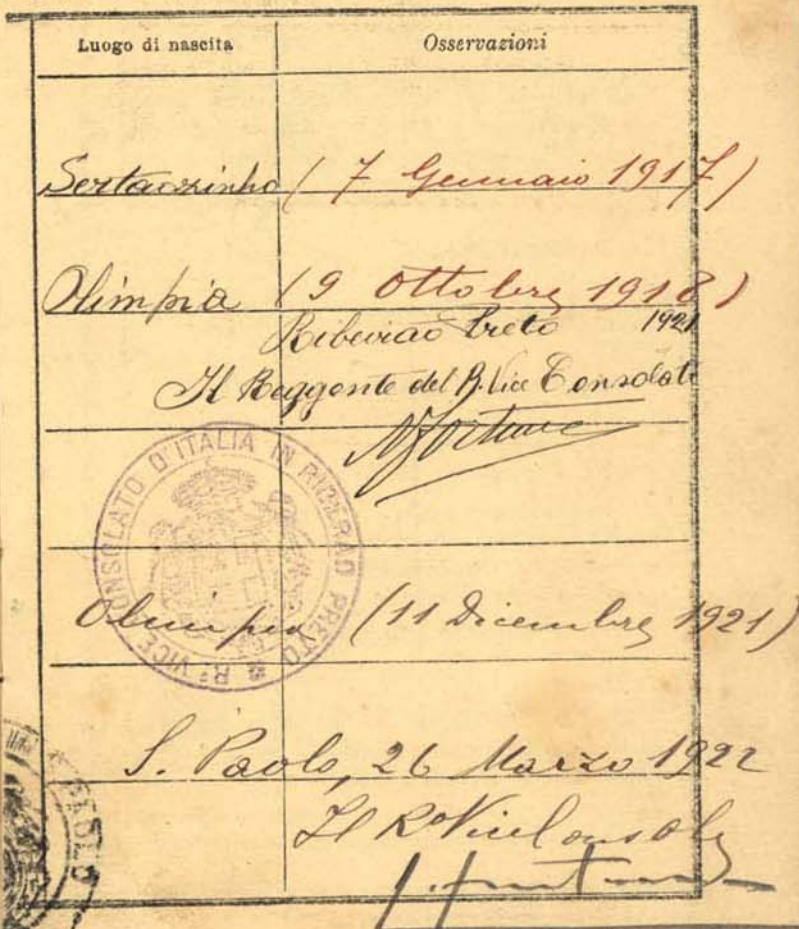 Luogo di nascita Osservazioni
Sertaozinho (7 Gennaio 1917)
Olimpia (9 Ottobre 1918)
Ribeirao Preto 1921
Il Reggente del R. Vice Consolato
R. VICE CONSOLATO D'ITALIA IN RIBEIRAO PRETO
Olimpia (11 Dicembre 1921)
S. Paolo, 26 Marzo 1922
Il Ro Vice Console
PAOLO